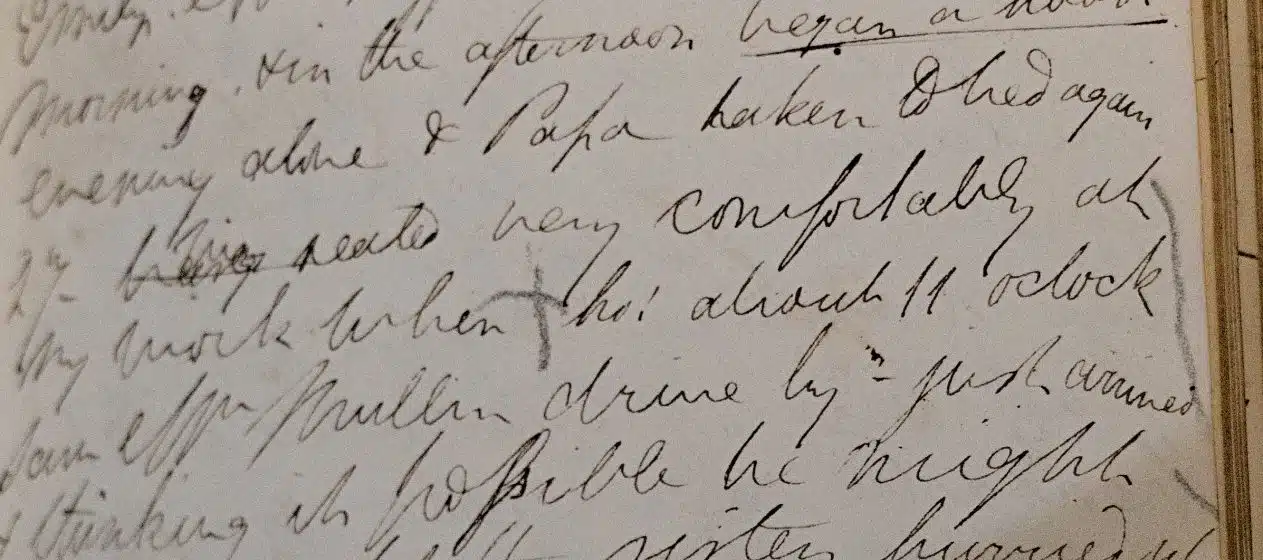 Emily.
morning. & in the afternoon began a
evening alone & Papa taken to bed again
being seated very comfortably at
my work when ho! about 11 oclock
saw Mullin drive by - just arrived
& thinking it possible he might
sister hurried